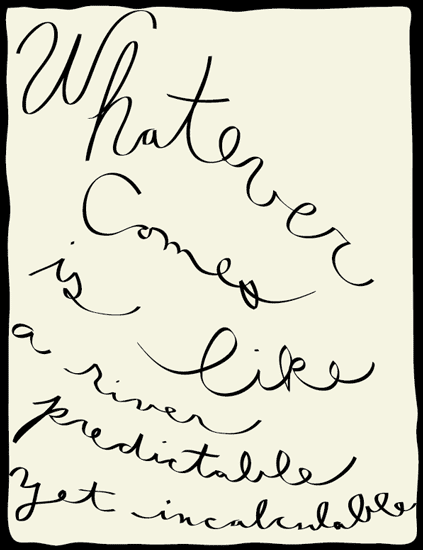 Whatever
Comes
is like
a river
predictable
yet incalculable